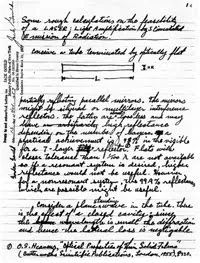 Some rough calculations on the feasibility
of a LASER: Light Amplification by Stimulated
Emission of Radiation.
conceive a tube terminated by optically flat
L
partially reflecting parallel mirrors. The mirrors
might be silvered or multilayer interference
reflectors. The latter are lossless and may
have reflectivity depending
on the number of layers. A
practical achievement is 98% in the visible
for a 7-layer reflector. Flats with
closer tolerance than λ/100 are not available
so if a resonant system is desired, higher
reflectance would not be useful. However
for a nonresonant system, the 99.9% reflectances
which are possible might be useful.
Consider a plane wave in the tube. There
is the effect of a closed cavity; since
the wavelength is small the diffraction
and hence the lateral loss is negligible.
O.S. Heavens, "Optical Properties of Thin Solid Films"
(Butterworths Scientific Publications, London, 1955), p. 220.